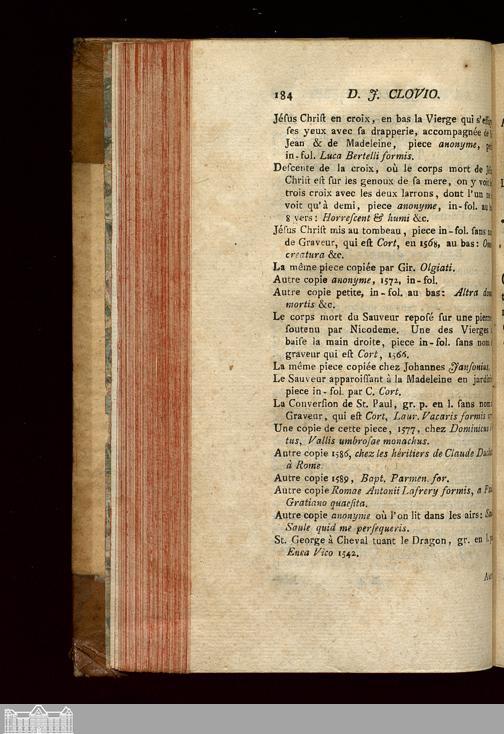 184 D. J. CLOVIO.
Jéſus Chriſt en croix, en bas la Vierge qui
ſes yeux avec ſa drapperie, accompagnée de
Jean & de Madeleine, piece anonyme,
in-fol. Luca Bertelli formis.
Deſcente de la croix, où le corps mort de
Chriſt eſt ſur les genoux de ſa mere, on y
trois croix avec les deux larrons, dont l'un
voit qu'à demi, piece anonyme, in-fol. au
8 vers: Horreſcent & humi &c.
Jéſus Chriſt mis au tombeau, piece in-fol. ſans
de Graveur, qui eſt Cort, en 1568, au bas:
creatura &c.
La même piece copiée par Gir. Olgiati.
Autre copie anonyme, 1572, in-fol.
Autre copie petite, in-fol. au bas: Altra
mortis &c.
Le corps mort du Sauveur repoſé ſur une pierre
ſoutenu par Nicodeme. Une des Vierges
baiſe la main droite, piece in-fol. ſans nom
graveur qui eſt Cort, 1566.
La même piece copiée chez Johannes Janſonius.
Le Sauveur apparoiſſant à la Madeleine en jardin
piece in-fol. par C. Cort.
La Converſion de St. Paul, gr. p. en l. ſans nom
Graveur, qui eſt Cort, Laur. Vacaris formis
Une copie de cette piece, 1577, chez Dominicus
tus, Vallis umbroſae monachus.
Autre copie 1586, chez les héritiers de Claude
à Rome.
Autre copie 1589, Bapt. Parmen. for.
Autre copie Romae Antonii Lafrery formis, a
Gratiano quaeſita.
Autre copie anonyme où l'on lit dans les airs:
Saule quid me perſequeris.
St. George à Cheval tuant le Dragon, gr. en l.
Enea Vico 1542.